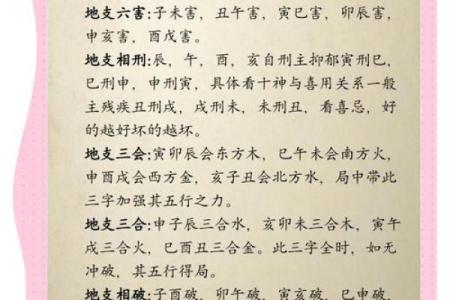 地支六害:子未害，丑午害，寅巳害，卯辰害，
申亥害，酉戌害。
地支相刑:辰，午，酉，亥自刑主抑郁寅刑巳，
巳刑申，申刑寅，具体看十神与喜用关系一般
主残疾丑刑戌，戌刑未，未刑丑，看喜忌，好
的越好坏的越坏。
地支三会:寅卯辰会东方木，巳午未会南方火，
申酉戌会西方金，亥子丑会北方水，局中带此
三字加强其五行之力。
地支三合:申子辰三合水，亥卯未三合木，寅午
戌三合火，巳酉丑三合金。此三字全时，如无
冲破，其五行得局。
地支相破:子酉破，卯午破，寅亥破，巳申破，